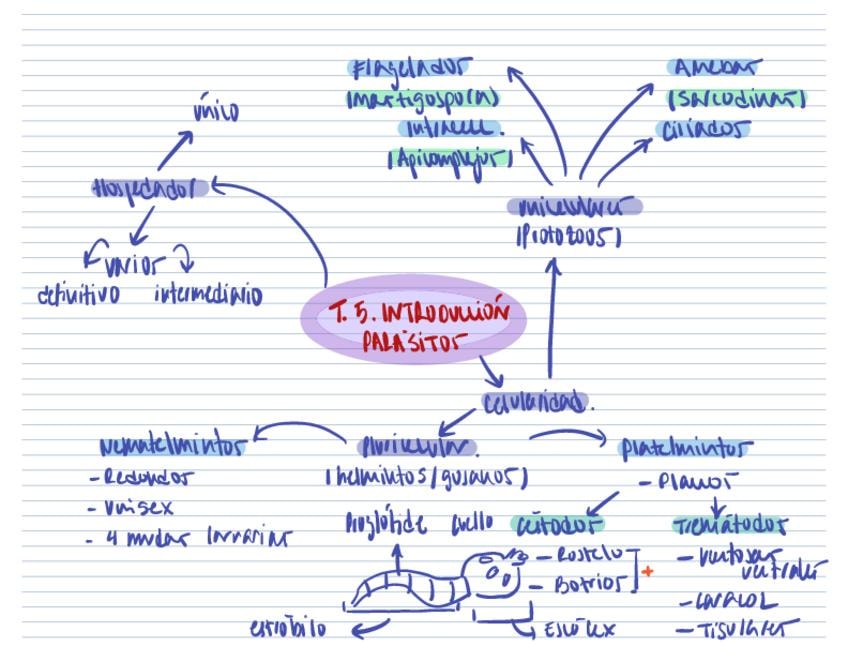 Flagelados
(mastigospora)
Intracel.
(Apicomplejos)
Amebas
(Sarcodinas)
Ciliados
único
Hospedador
varios
definitivo intermediario
unicelulares
(Protozoos)
T. 5. INTRODUCCIÓN
PARÁSITOS
celularidad.
Nematelmintos
- Redondos
- Unisex
- 4 mudas larvarias
Pluricelular.
(helmintos/gusanos)
Platelmintos
- Planos
Proglótide cuello
Cestodos
- Rostelo
- Botrios
+
Trematodos
- Ventosas
ventrales
- CARACOL
- Tisulares
estróbilo
Escólex